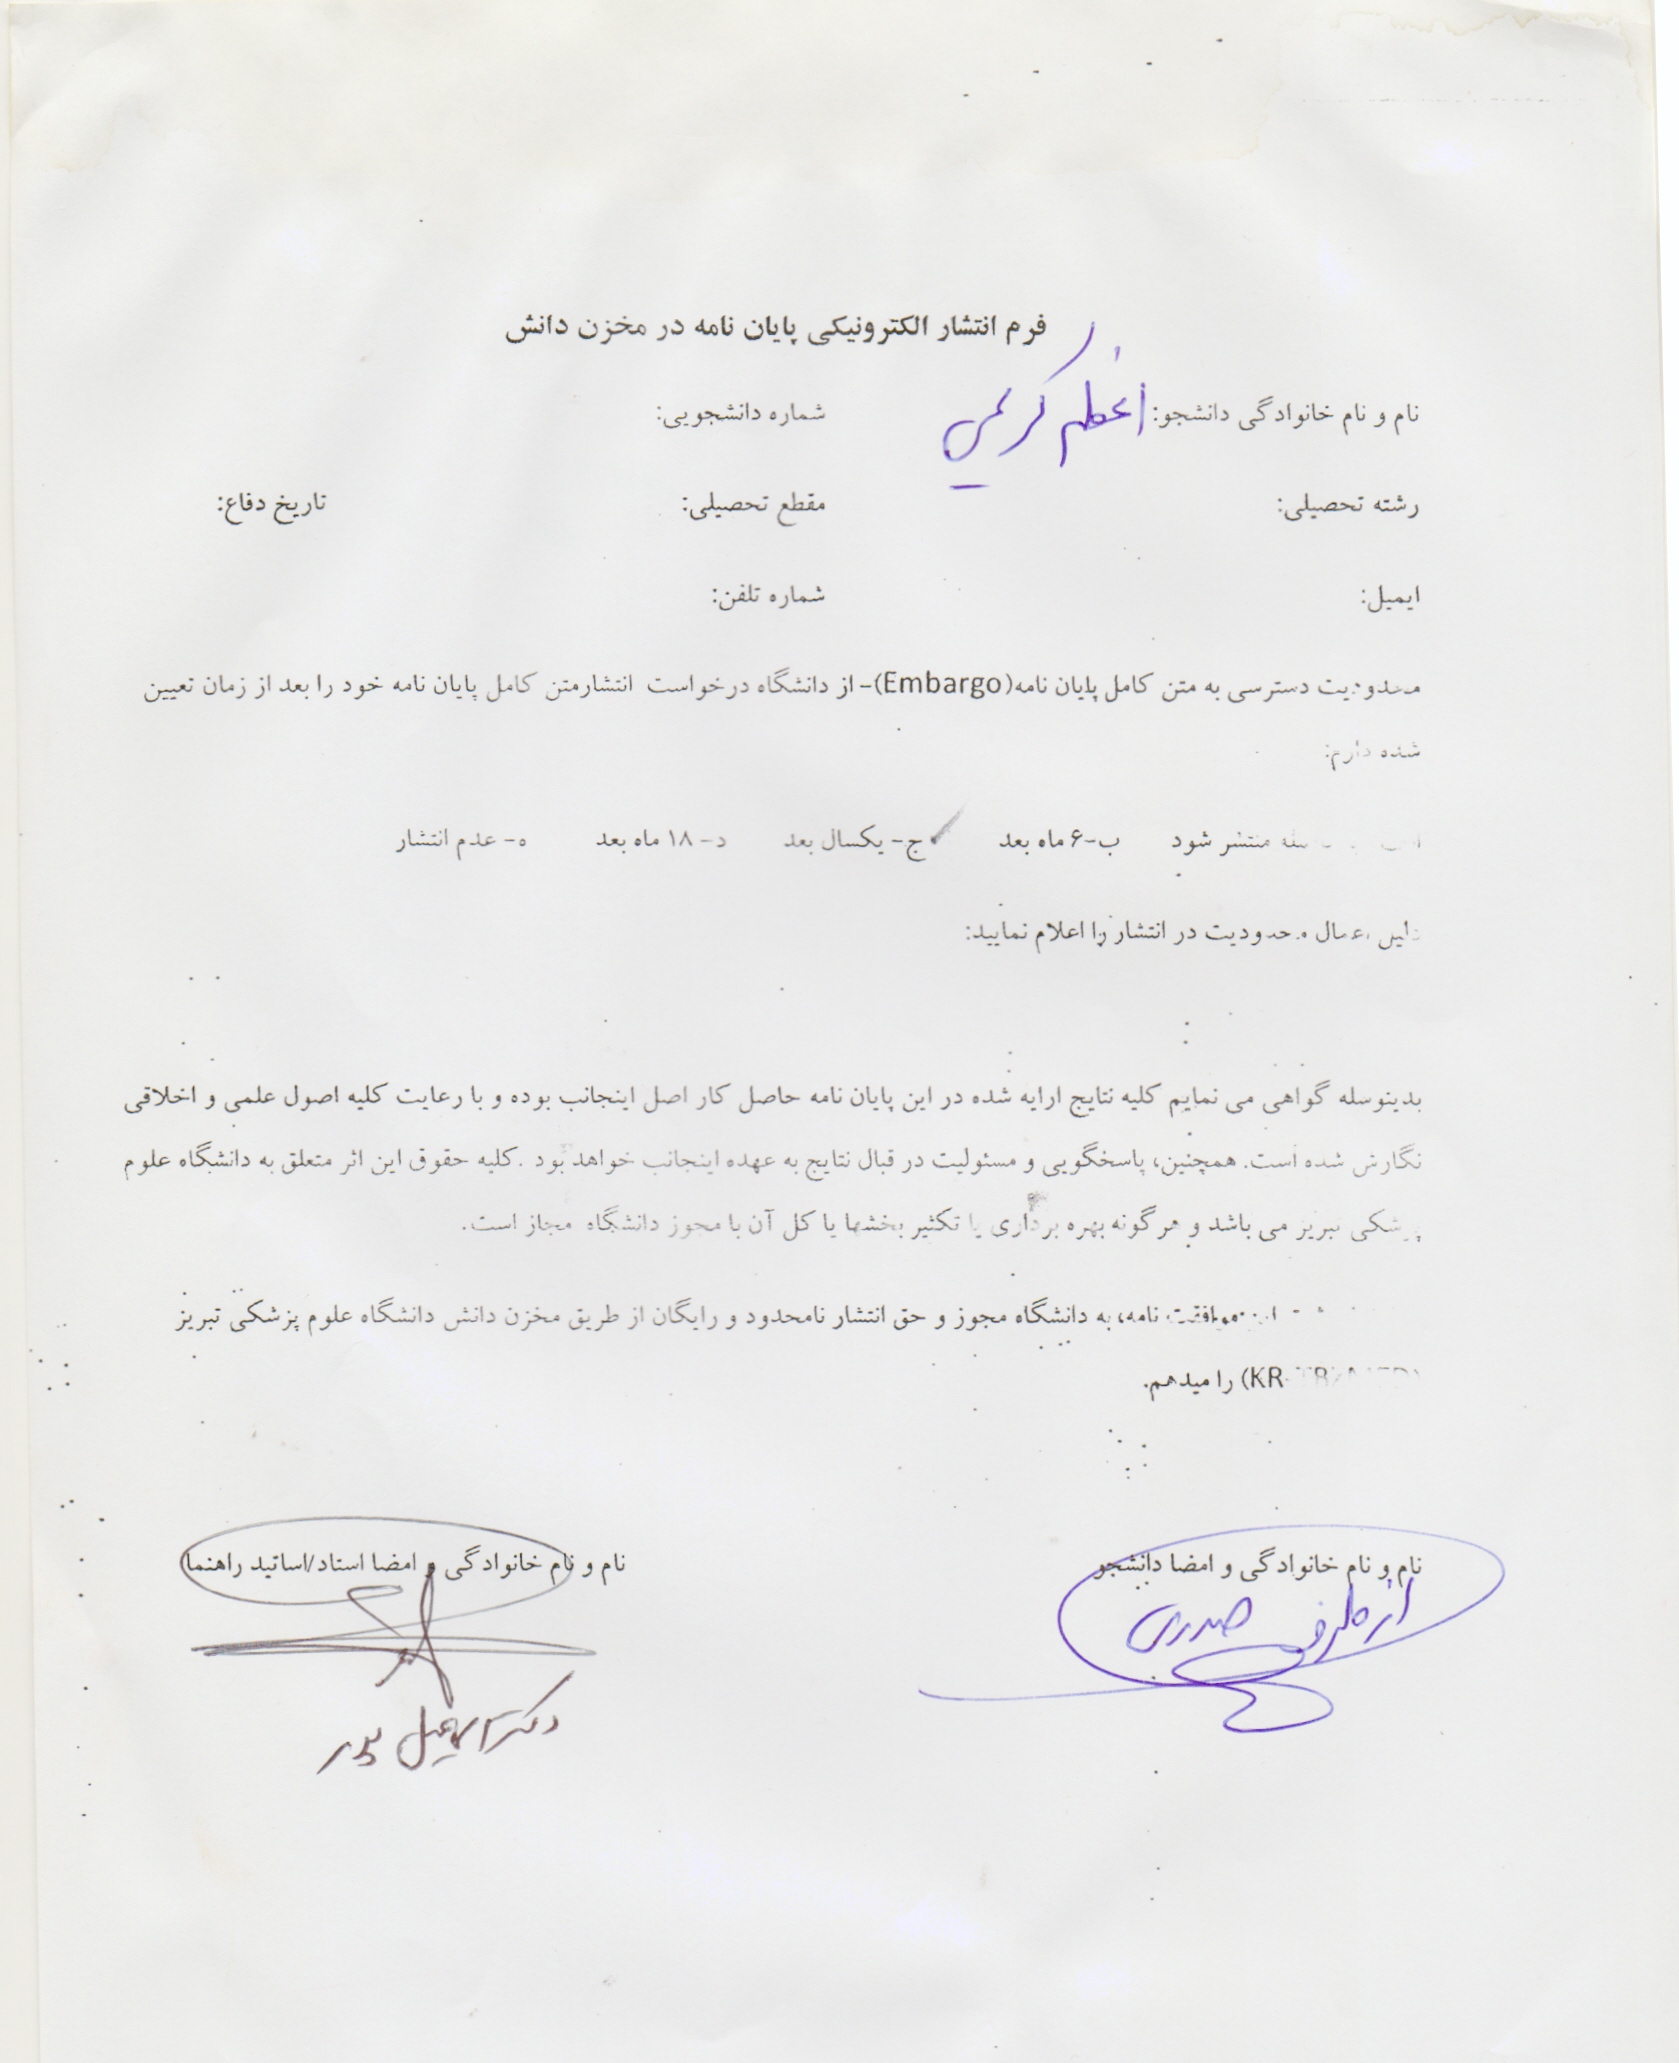 فرم انتشار الکترونیکی پایان نامه در مخزن دانش
نام و نام خانوادگی دانشجو: اعظم کریمی شماره دانشجویی:
رشته تحصیلی: مقطع تحصیلی: تاریخ دفاع:
ایمیل: شماره تلفن:
محدودیت دسترسی به متن کامل پایان نامه(Embargo)- از دانشگاه درخواست انتشارمتن کامل پایان نامه خود را بعد از زمان تعیین
شده دارم:
منتشر شود ب-۶ ماه بعد ج- یکسال بعد د- ۱۸ ماه بعد ه- عدم انتشار
دلیل اعمال محدودیت در انتشار را اعلام نمایید:
بدینوسله گواهی می نمایم کلیه نتایج ارایه شده در این پایان نامه حاصل کار اصل اینجانب بوده و با رعایت کلیه اصول علمی و اخلاقی
نگارش شده است. همچنین، پاسخگویی و مسئولیت در قبال نتایج به عهده اینجانب خواهد بود .کلیه حقوق این اثر متعلق به دانشگاه علوم
پزشکی تبریز می باشد و هرگونه بهره برداری یا تکثیر بخشها یا کل آن با مجوز دانشگاه مجاز است.
موافقت نامه، به دانشگاه مجوز و حق انتشار نامحدود و رایگان از طریق مخزن دانش دانشگاه علوم پزشکی تبریز
را میدهم.
نام و نام خانوادگی و امضا دانشجو نام و نام خانوادگی و امضا استاد/اساتید راهنما
صدری
دکتر اسماعیل پور